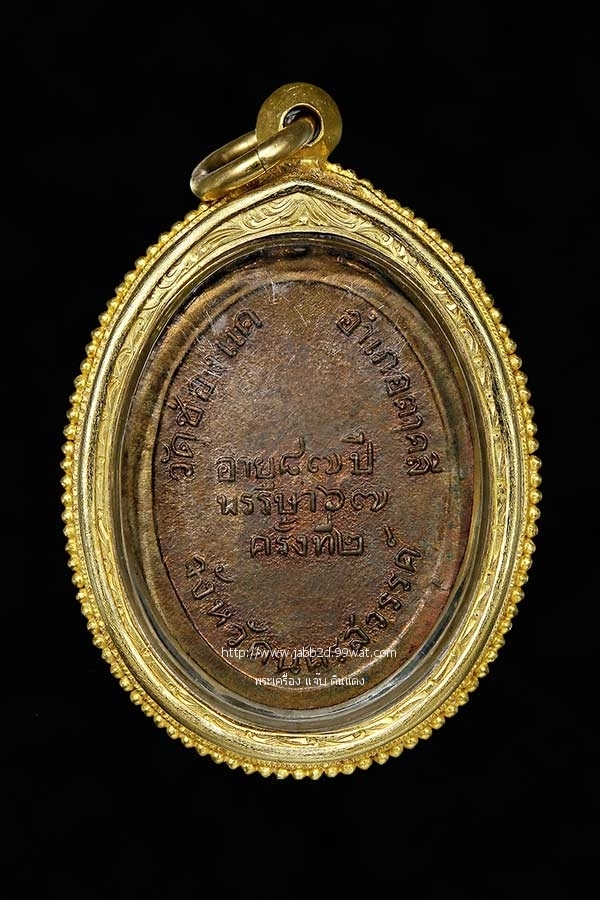 วัดช่องแค
อำเภอตาคลี
อายุ๘๗ปี
พรรษา๖๗
ครั้งที่๒
จังหวัดนครสวรรค์
http://www.jabb2d.99wat.com
พระเครื่อง แจ๊บ ดินแดง